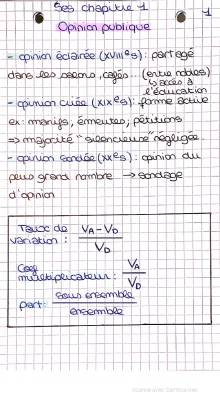 Ses chapitre 1
1
Opinion publique
- opinion éclairée (XVIIIes) : partagé
dans les salons, cafés... (entre nobles)
↳ accès à
l'éducation
- opinion criée (XIXes) : forme active
ex: manifs, émeutes, pétitions
⇒ majorité "silencieuse" négligée
- opinion sondée (XXes) : opinion du
plus grand nombre → sondage
d'opinion
Taux de variation : VA - VD / VD
Coef multiplicateur : VA / VD
part : sous ensemble / ensemble